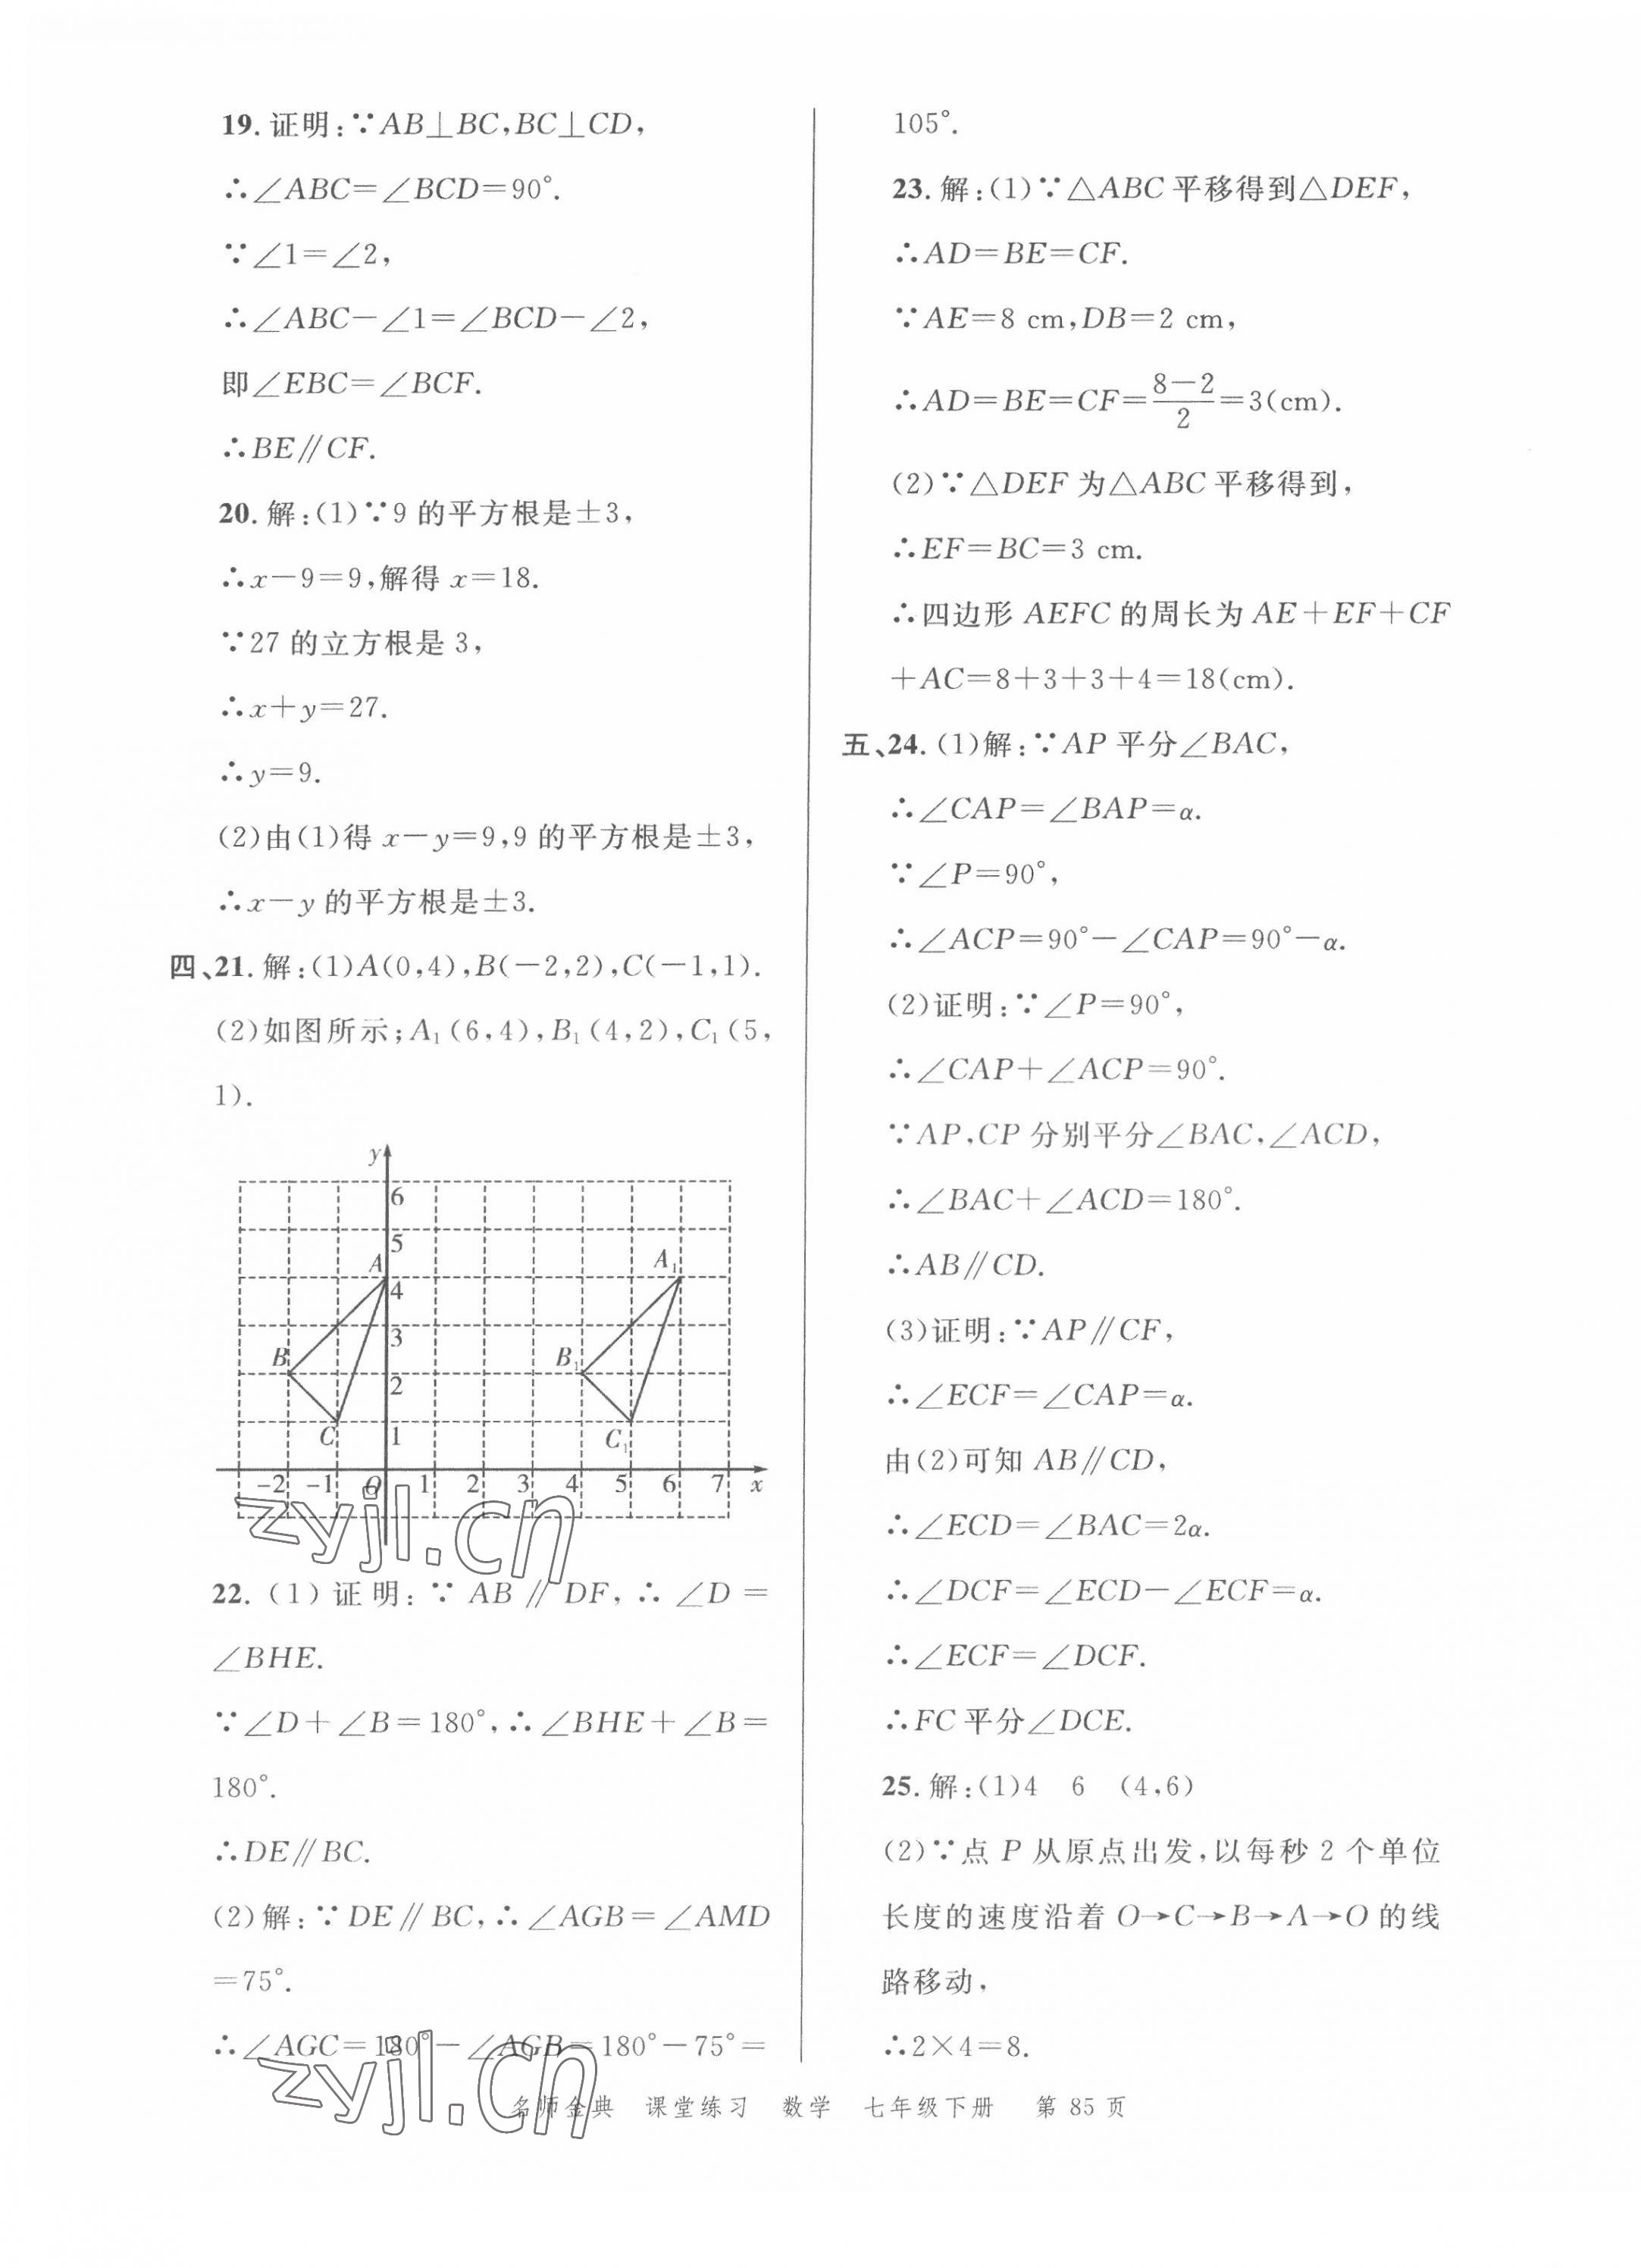 19. 证明:∵AB⊥BC,BC⊥CD,
∴∠ABC=∠BCD=90°.
∵∠1=∠2,
∴∠ABC-∠1=∠BCD-∠2,
即∠EBC=∠BCF.
∴BE∥CF.
20. 解:(1)∵9 的平方根是±3,
∴x-9=9,解得 x=18.
∵27 的立方根是 3,
∴x+y=27.
∴y=9.
(2)由(1)得 x-y=9,9 的平方根是±3,
∴x-y 的平方根是±3.
四、21. 解:(1)A(0,4),B(-2,2),C(-1,1).
(2)如图所示;A₁(6,4),B₁(4,2),C₁(5,
1).
y
6
5
A
A₁
4
3
B
B₁
2
C
1
C₁
-2 -1 O 1 2 3 4 5 6 7 x
zyjl.cn
22. (1)证明:∵ AB∥DF,∴ ∠D=
∠BHE.
∵∠D+∠B=180°,∴∠BHE+∠B=
180°.
∴DE∥BC.
(2)解:∵DE∥BC,∴∠AGB=∠AMD
=75°.
∴∠AGC=180°-∠AGB=180°-75°=
zyjl.cn
105°.
23. 解:(1)∵△ABC 平移得到△DEF,
∴AD=BE=CF.
∵AE=8 cm,DB=2 cm,
∴AD=BE=CF=\frac{8-2}{2}=3(cm).
(2)∵△DEF 为△ABC 平移得到,
∴EF=BC=3 cm.
∴四边形 AEFC 的周长为 AE+EF+CF
+AC=8+3+3+4=18(cm).
五、24. (1)解:∵AP 平分∠BAC,
∴∠CAP=∠BAP=α.
∵∠P=90°,
∴∠ACP=90°-∠CAP=90°-α.
(2)证明:∵∠P=90°,
∴∠CAP+∠ACP=90°.
∵AP,CP 分别平分∠BAC,∠ACD,
∴∠BAC+∠ACD=180°.
∴AB∥CD.
(3)证明:∵AP∥CF,
∴∠ECF=∠CAP=α.
由(2)可知 AB∥CD,
∴∠ECD=∠BAC=2α.
∴∠DCF=∠ECD-∠ECF=α.
∴∠ECF=∠DCF.
∴FC 平分∠DCE.
25. 解:(1)4 6 (4,6)
(2)∵点 P 从原点出发,以每秒 2 个单位
长度的速度沿着 O→C→B→A→O 的线
路移动,
∴2×4=8.
名师金典 课堂练习 数学 七年级下册 第 85 页